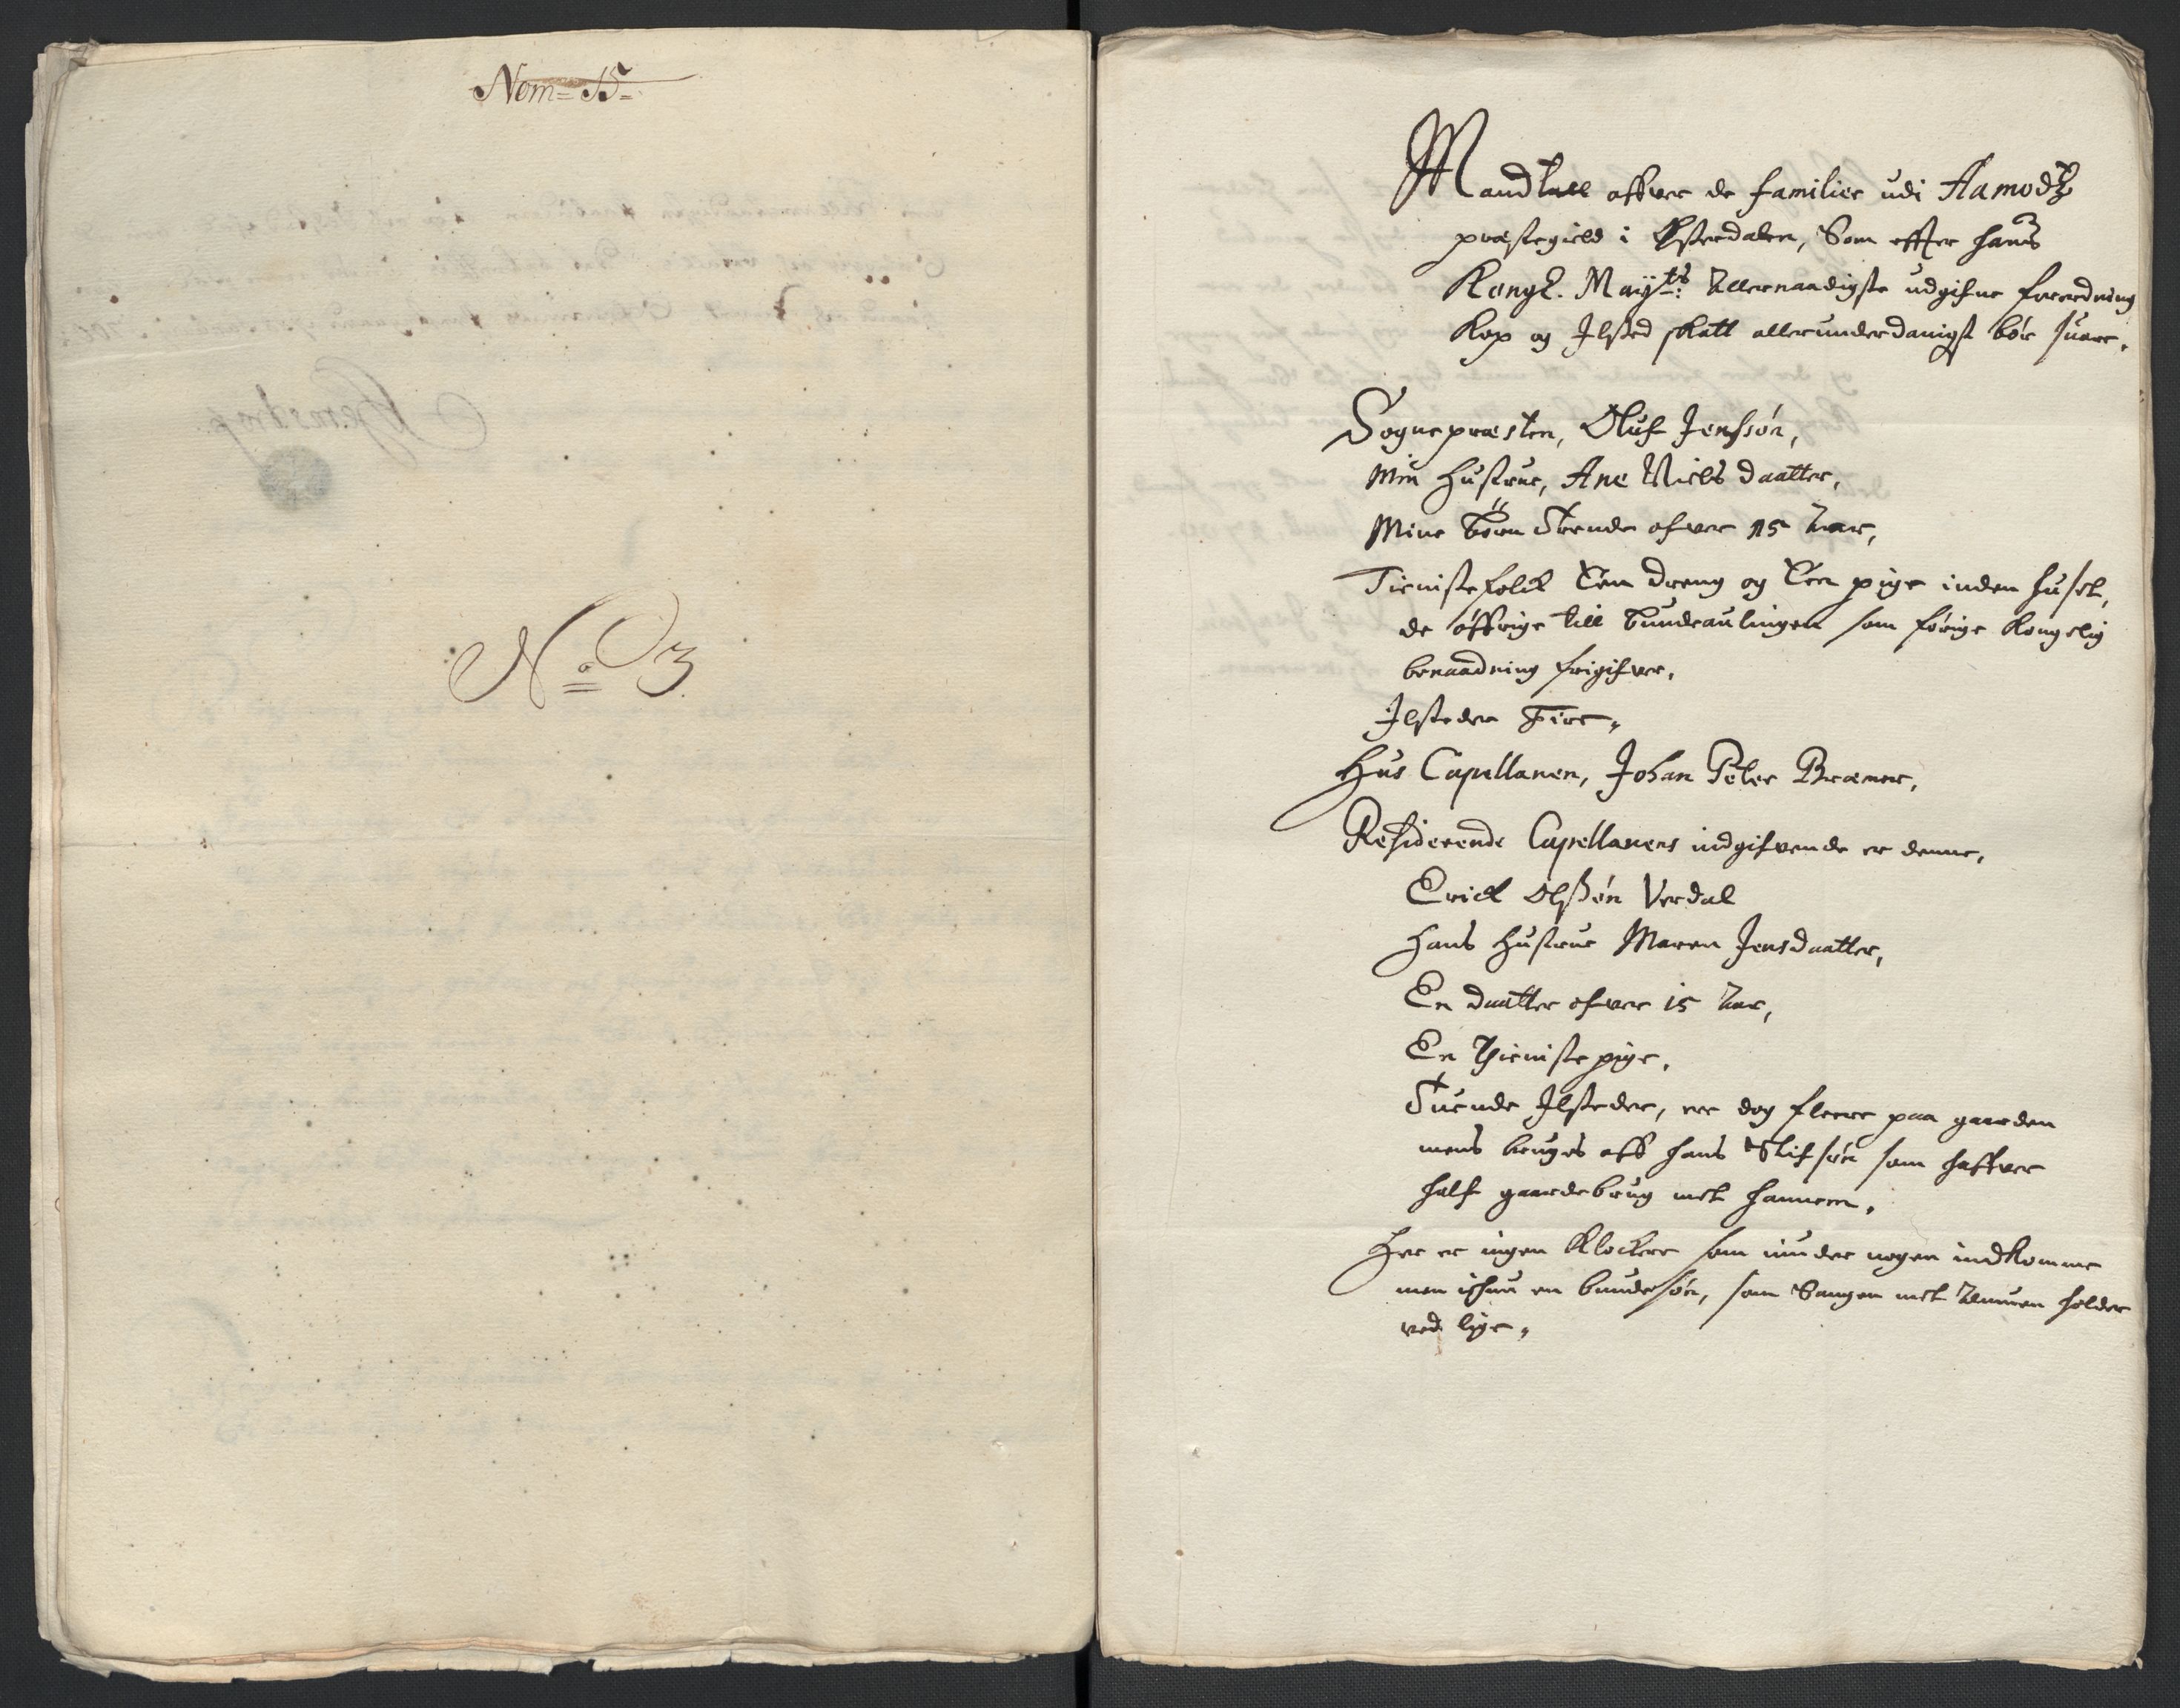 Nom= 15=
No 3
Mandtall offver de familier udi Aamodtz
præstegield i Østerdalen, Som effter hans
Kongl. Mayts: Allernaadigste udgifne forordning
Kop og Ilsted skatt allerunderdanigst bør svare,
Sognepræsten, Oluf Jenssøn,
Min hustrue, Ane Niels daatter,
Mine børn Trende ofver 15 Aar,
Tienistefolck Een dreng og Een pige inden huset,
de øffrige till bundeaulingen som forige kongelig
benaadning frigifver,
Ilsteder Fire,
Hus Capellanen, Johan Peter Bræmer,
Residerende Capellanens indgifvende er denne,
Erick Olssøn Verdal
hans hustrue Maren Jensdaatter,
En daatter ofver 15 Aar,
En Thienistepige,
Tuende Ilsteder, ere dog fleere paa gaarden
mens bruges aff hans Stifsøn som haffver
half gaardebrug met hannem,
Her er ingen Klockere som niuder nogen indkomme
men en bundesøn, som Sangen met holder
ved lige,